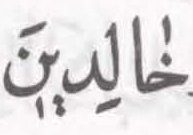 خٰالِدِينَ